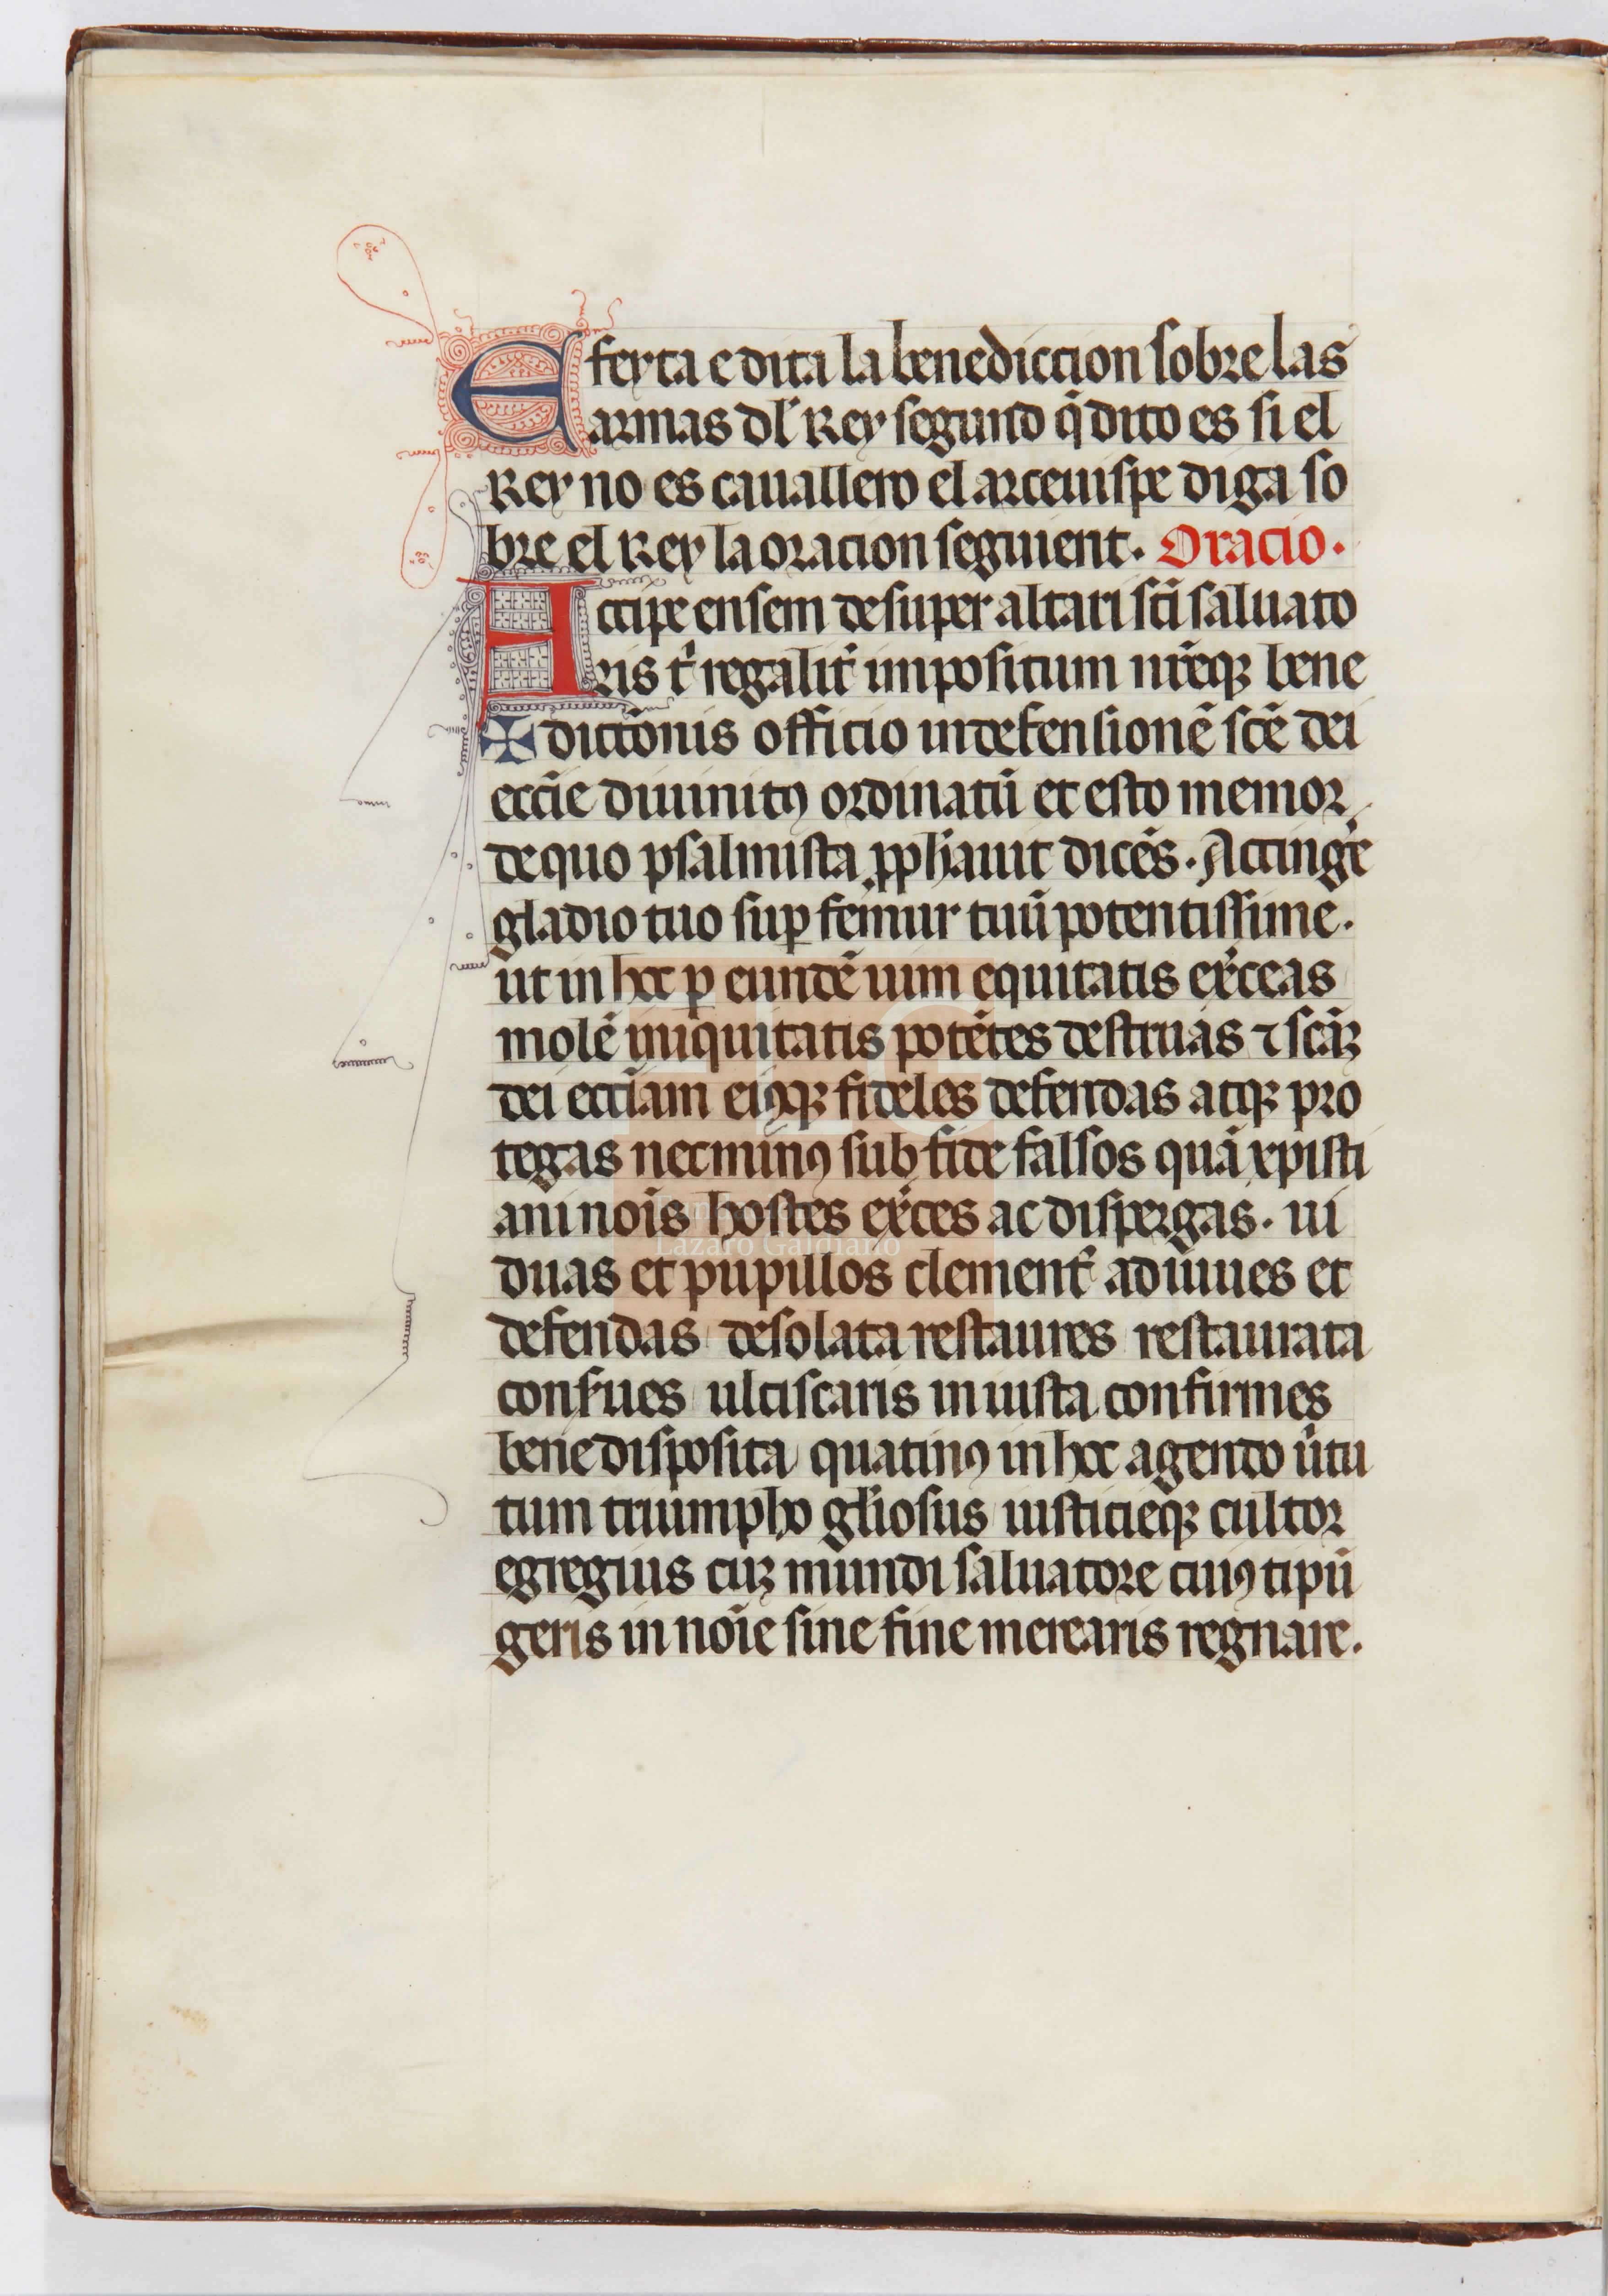 E feyta e dita la benediccion sobre las
armas dl' Rey segund q̄ dito es si el
Rey no es cauallero el arceuispe diga so
bre el Rey la oracion seguient. Oracio.
Accipe ensem desuper altari sc̄i saluato
ris t̄ regalit̄ impositum nr̄eqꝫ bene
✠ dictōnis officio in defensionē sc̄e dei
eccl̄ie diuinitꝰ ordinatū et esto memor
de quo psalmista ꝓph̄auit dicēs. Accinge
gladio tuo suꝑ femur tuū potentissime.
ut in hoc ꝑ eundē uim equitatis ex̄ceas
molē iniquitatis potēter destruas ⁊ sc̄aꝫ
dei eccl̄iam eiꝰqꝫ fideles defendas atqꝫ pro
tegas nec minꝰ sub fide falsos quā xpisti
ani nois̄ hostes ex̄ces ac dispergas. ui
duas et pupillos clement̄ adiuues et
defendas desolata restaures restaurata
conserues ulciscaris iniusta confirmes
bene disposita quatinꝰ in hoc agendo ūtu
tum triumpho gl̄iosus iusticieqꝫ cultor
egregius cuꝫ mundi saluatore cuiꝰ tipū
geris in noīe sine fine merearis regnare.
Lázaro Galdiano